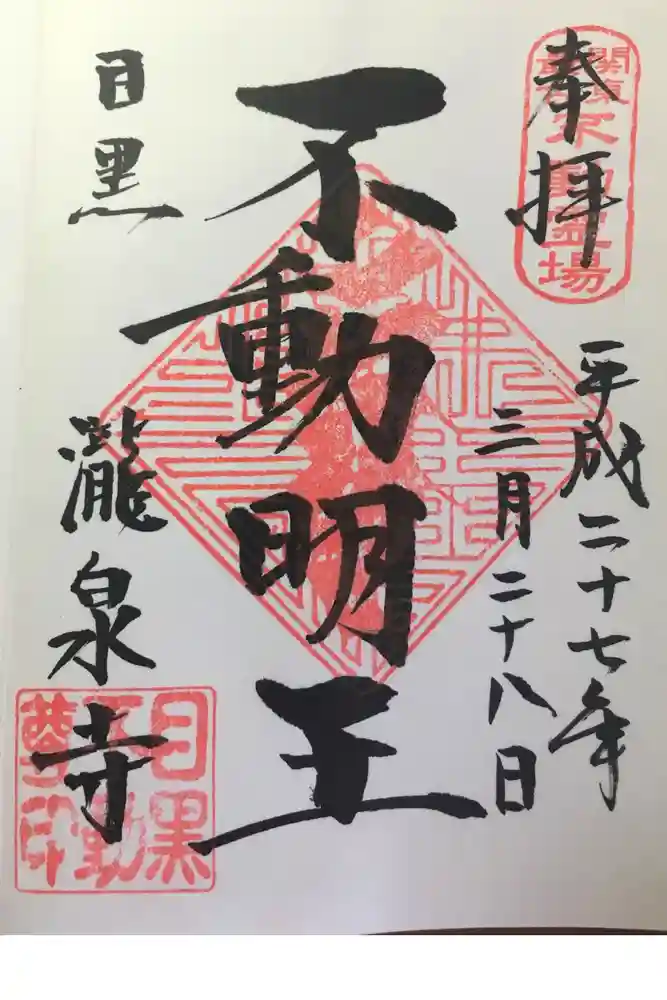 奉拝
関東最古不動霊場
平成二十七年
三月二十八日
不動明王
目黒
瀧泉寺
目黒不動尊印